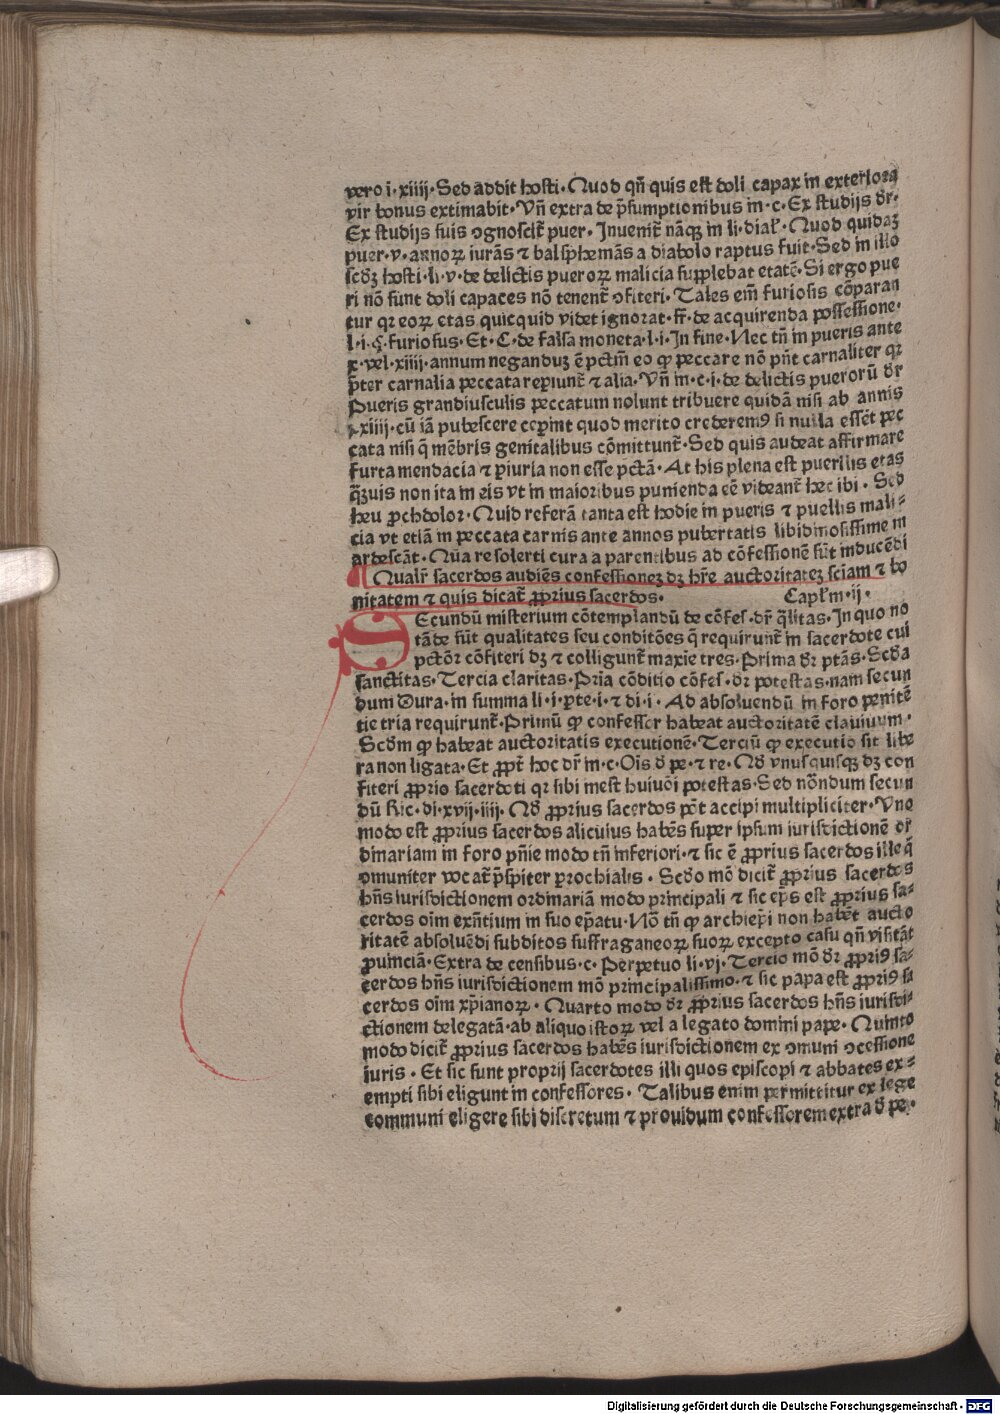 vero i·xiiij·Sed addit hosti·Quod qñ quis est doli capax in exteriora
vir bonus extimabit·Vñ extra de p̄sumptionibus in·c·Ex studijs dr̄·
Ex studijs suis ꝯgnoscit̄ puer·Inuenit̄ nāqꝫ in li·dial̄·Quod quidaꝫ
puer·v·annoꝝ iurās ⁊ balsphemās a diabolo raptus fuit·Sed in illo
scd̄ꝫ hosti·li·v·de delictis pueroꝝ malicia supplebat etatē·Si ergo pue
ri nō sunt doli capaces nō tenent̄ ꝯfiteri·Tales em̄ furiosis cōparan
tur qꝛ eoꝝ etas quicquid videt ignorat·ff·de acquirenda possessione·
l·i·ꝭ·furiosus·Et·C·de falsa moneta·l·i·In fine·Nec tn̄ in pueris ante
x·vel·xiiij·annum neganduꝫ ē pctm̄ eo ꝙ peccare nō pn̄t carnaliter qꝛ
p̄ter carnalia peccata reꝑiunt̄ ⁊ alia·Vñ in·c·i·de delictis puerorū dr̄
Pueris grandiusculis peccatum nolunt tribuere quidā nisi ab annis
xiiij·cū iā pubescere ceꝑint quod merito crederemꝰ si nulla essēt pec
cata nisi q̄ mēbris genitalibus cōmittunt̄·Sed quis audeat affirmare
furta mendacia ⁊ ꝑiuria non esse pctā·At his plena est puerilis etas
q̄ꝫuis non ita in eis vt in maioribus punienda eē videant̄ hec ibi·Sed
heu ꝓchdolor·Quid referā tanta est hodie in pueris ⁊ puellis mali-
cia vt etiā in peccata carnis ante annos pubertatis libidinosissime in
ardescāt·Nūa re solerti cura a parentibus ad cōfessionē sūt inducēdi
Qualr̄ sacerdos audiēs confessioneꝫ dꝫ hr̄e auctoritateꝫ sciam ⁊ bo
nitatem ⁊ quis dicat̄ ꝓprius sacerdos· Capl̄m·ij·
Secundū misterium cōtemplandū de cōfes·dr̄ q̄litas·In quo no
tāde sūt qualitates seu conditōes q̄ requirunt̄ in sacerdote cui
pctōꝝ cōfiteri dꝫ ⁊ colligunt̄ maxie tres·Prima dr̄ ptās·Scd̄a
sanctitas·Tercia claritas·Pria cōditio cōfes·dr̄ potestas·nam secun
dum Dura·in summa li·i·ꝑte·i·⁊ di·i·Ad absoluendū in foro penitē
tie tria requirunt̄·Primū ꝙ confessor habeat auctoritatē clauium·
Scd̄m ꝙ habeat auctoritatis executionē·Terciū ꝙ executio sit libe
ra non ligata·Et ꝓpt̄ hoc dr̄ in·c·Oīs d̄ pe·⁊ re·Qd̄ vnusquisqꝫ dꝫ con
fiteri ꝓprio sacerdoti qꝛ sibi inest huiꝰmōi potestas·Sed nōndum secun
dū Ric·di·xvij·iiij·Qd̄ ꝓprius sacerdos pōt accipi multipliciter·Vno
modo est ꝓprius sacerdos alicuius habēs super ipsum iurisdictionē or
dinariam in foro pn̄ie modo tn̄ inferiori·⁊ sic ē ꝓprius sacerdos ille q̄
ꝯmuniter vocat̄ p̄spiter ꝑrochialis·Scd̄o mō dicit̄ ꝓprius sacerdos
hn̄s iurisdictionem ordinariā modo principali ⁊ sic ep̄s est ꝓprius sa-
cerdos oīm exn̄tium in suo ep̄atu·Nō tn̄ ꝙ archiep̄i non habēt aucto
ritatē absoluēdi subditos suffraganeoꝝ suoꝝ excepto casu qñ visitāt
ꝓuinciā·Extra de censibus·c·Perpetuo li·vj·Tercio mō dr̄ ꝓpriꝰ sa-
cerdos hn̄s iurisdictionem mō principalissimo·⁊ sic papa est ꝓpriꝰ sa
cerdos oīm xp̄ianoꝝ·Quarto modo dr̄ ꝓprius sacerdos hn̄s iurisdi-
ctionem delegatā·ab aliquo istoꝝ vel a legato domini pape·Quinto
modo dicit̄ ꝓprius sacerdos habēs iurisdictionem ex ꝯmuni ꝯcessione
iuris·Et sic sunt proprij sacerdotes illi quos episcopi ⁊ abbates ex-
empti sibi eligunt in confessores·Talibus enim permittitur ex lege
communi eligere sibi discretum ⁊ prouidum confessorem extra d̄ pe·
Digitalisierung gefördert durch die Deutsche Forschungsgemeinschaft - DFG